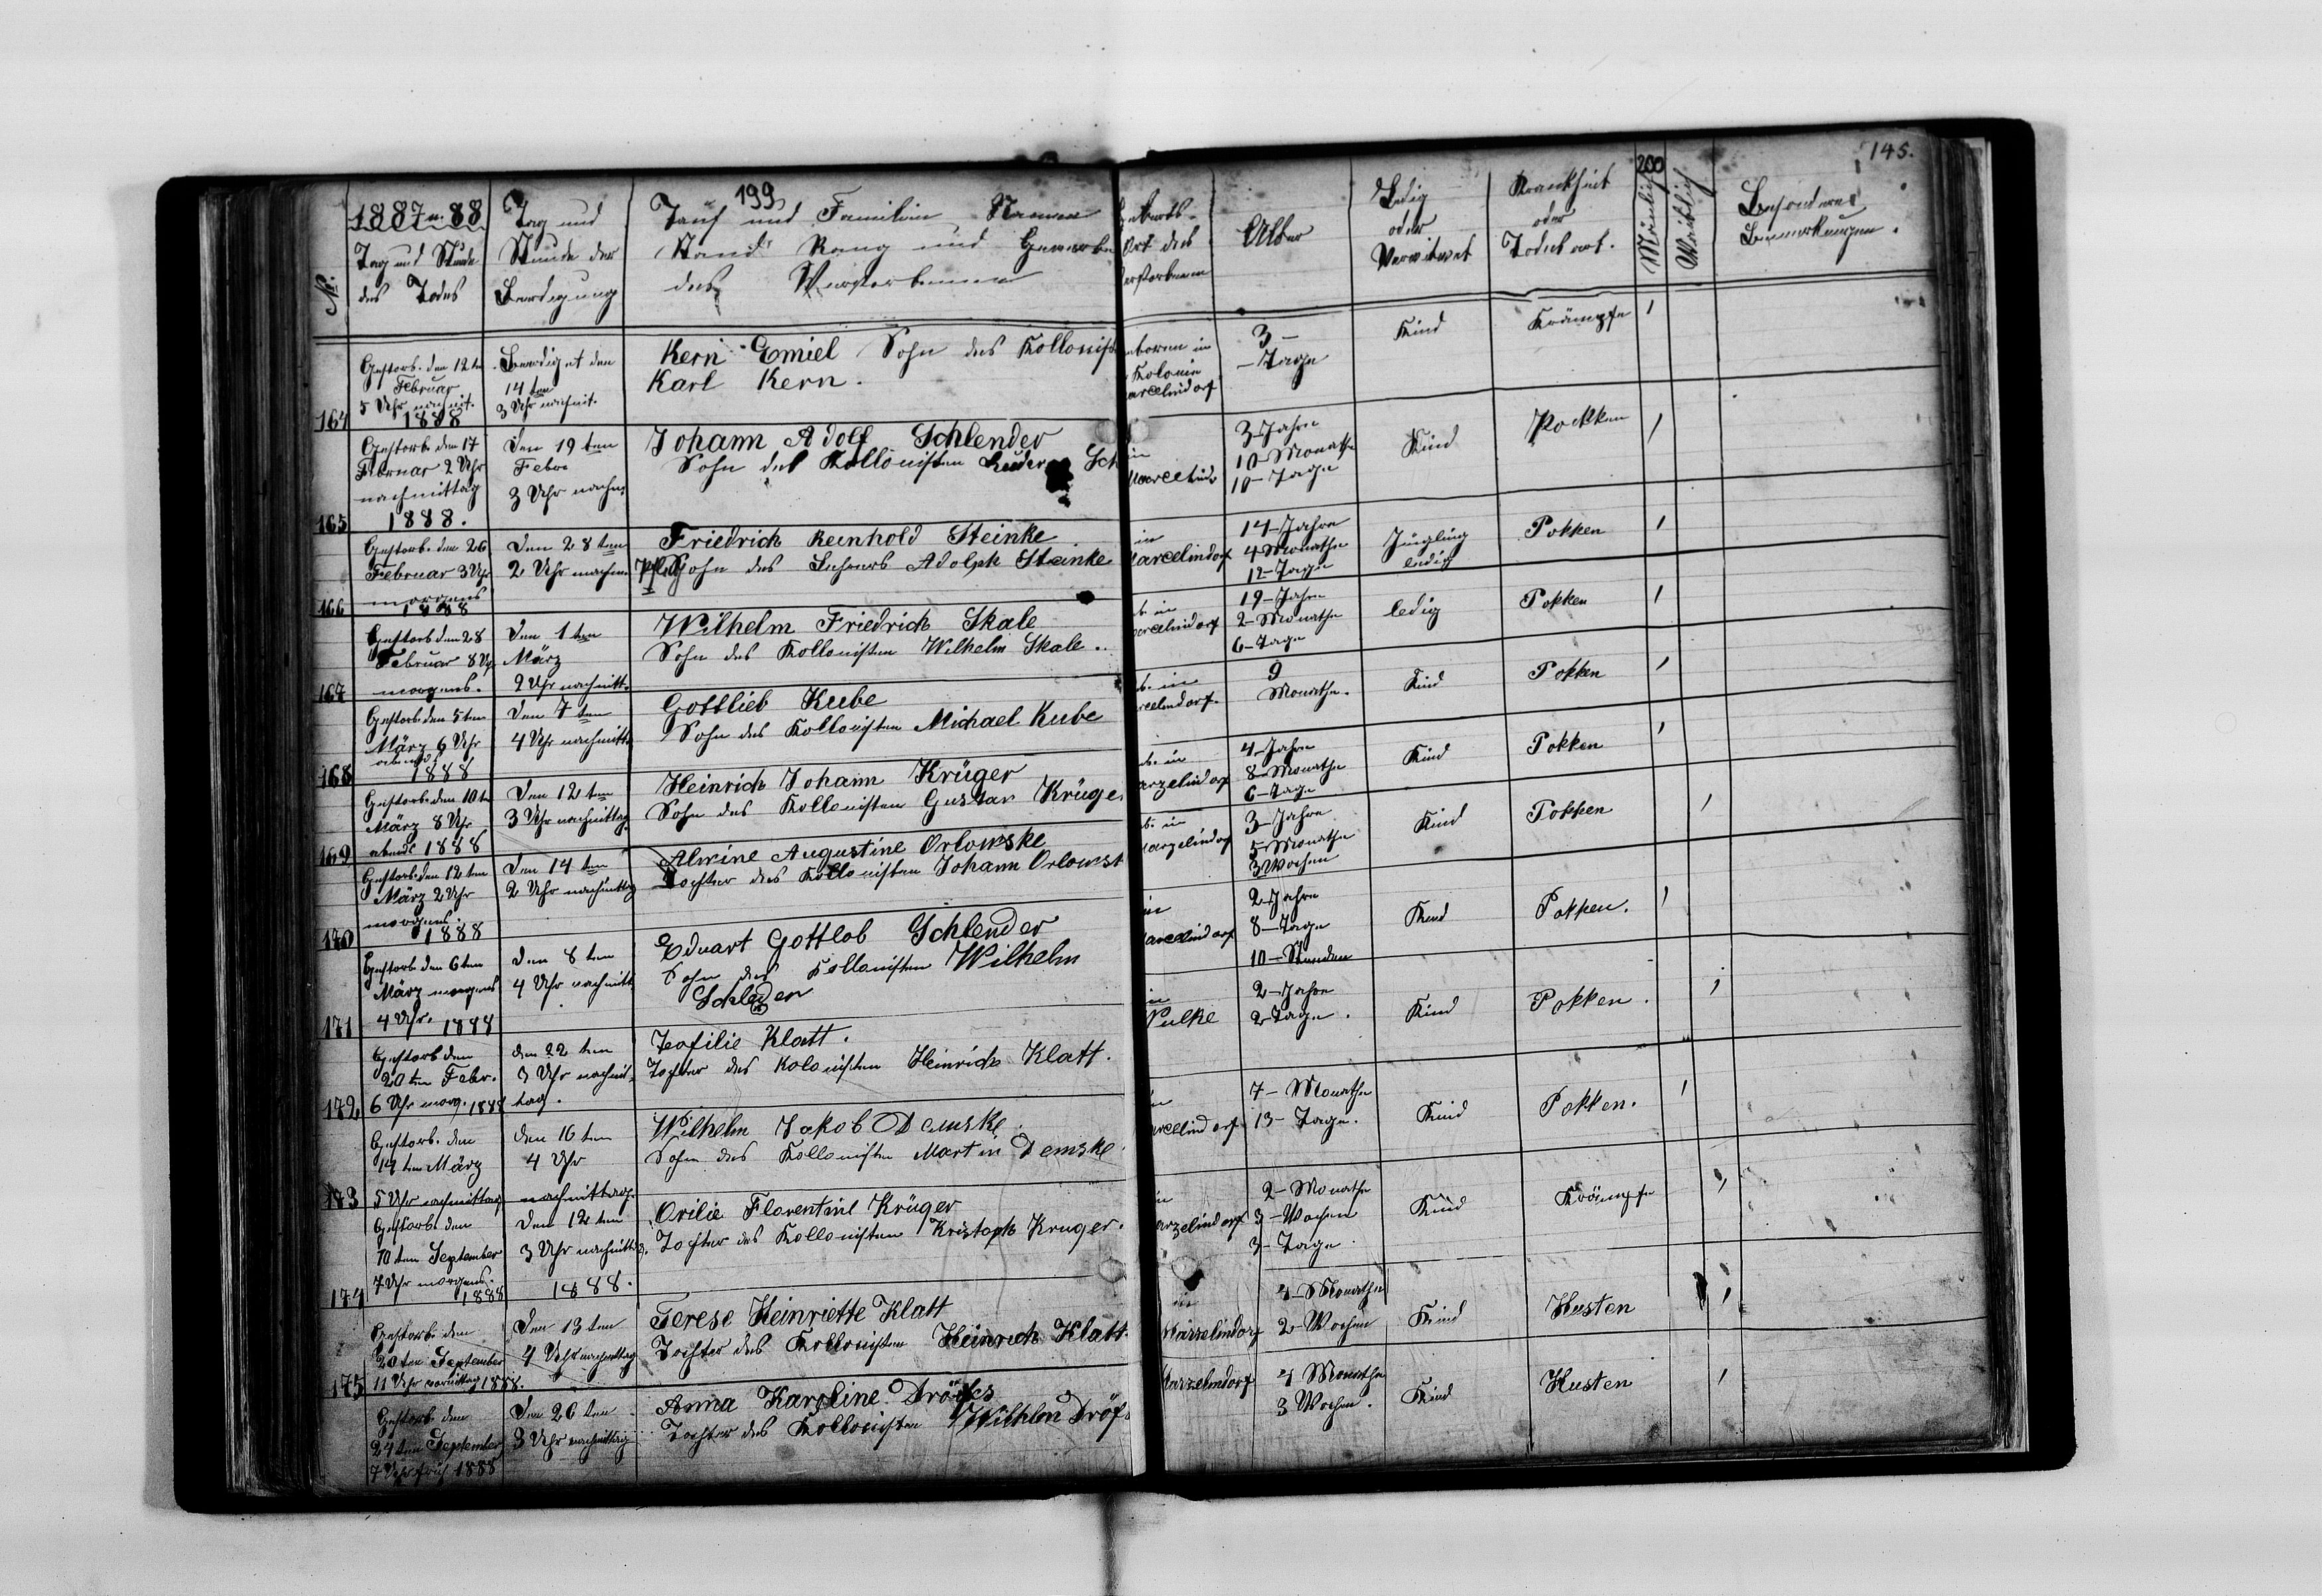 199
200
145.
1887 u. 88
No.
Tag und Stunde
des Todes
Tag und
Stunde der
Beerdigung
Tauf und Familien Namen
Stand Rang und Gewerbe
des Verstorbenen
Geburts-
Ort des
Verstorbenen
Alter
Ledig
oder
Verwitwet
Krankheit
oder
Todesart.
Mänlich
Weiblich
Besondere
Bemerkungen.
164
Gestorb. den 12ten
Februar
5 Uhr nachmit.
1888
Beerdiget den
14 ten
3 Uhr nachmit.
Kern Emiel Sohn des Kollonist
Karl Kern.
eboren in
Kolonie
arcelindorf
3 –
– Tage
Kind
Krämpfe
1
165
Gestorb. den 17
Februar 2 Uhr
nachmittag
1888.
Den 19 ten
Febr.
3 Uhr nachm.
Johann Adolf Schlender
Sohn des Kollonisten Sch
in
3 Jahre
10 – Monathe
10 – Tage
Kind
Pokken
1
166
Gestorb. den 26
Februar 3 Uhr
morgens
1888
Den 28 ten
2 Uhr nachm.
Friedrich Reinhold Steinke
Sohn des Lehrers Adolph Steinke
in
arcelindorf
14 – Jahre
4 Monathe
12 – Tage
Jüngling
ledig
Pokken
1
167
Gestorb den 28
Februar 8 Uhr
morgens.
Den 1 ten
März
2 Uhr nachmitt.
Wilhelm Friedrich Skale
Sohn des Kollonisten Wilhelm Skale.
b. in
arcelindorf
19 – Jahre
2 – Monathe
6 – Tage
ledig
Pokken
1
168
Gestorb. den 5ten
März 6 Uhr
abends
1888
Den 7 ten
4 Uhr nachmitt.
Gottlieb Kube
Sohn des Kollonisten Michael Kube
b. in
rcelindorf.
9
Monathe.
Kind
Pokken
1
169
Gestorb. den 10ten
März 8 Uhr
abends 1888
Den 12 ten
3 Uhr nachmittag
Heinrich Johann Krüger
Sohn des Kollonisten Gustav Krüge
b. in
arzelindorf
4 – Jahre
8 – Monathe
6 – Tage
Kind
Pokken
1
170
Gestorb. den 12 ten
März 2 Uhr
morgens.
1888
Den 14 ten
2 Uhr nachmittag
Alwine Augustine Orlowske
Tochter des Kollonisten Johann Orlowsk
b. in
arzelindorf
3 – Jahre
5 – Monathe
3 Wochen
Kind
Pokken
1
171
Gestorb. den 6ten
März morgens
4 Uhr. 1888
den 8 ten
4 Uhr nachmitt
Eduart Gottlob Schlender
Sohn des Kollonisten Wilhelm
Schleder
in
arcelindorf
2 – Jahre
8 – Tage
10 – Stunden
Kind
Pokken.
1
172
Gestorb den
20 ten Febr.
6 Uhr morg. 1888
den 22 ten
3 Uhr nachmit-
tag.
Teofilie Klatt.
Tochter des Kolonisten Heinrich Klatt.
in
Pulke
2 – Jahre
2 Tage.
Kind
Pokken.
1
173
Gestorb. den
14 ten März
5 Uhr nachmittag
den 16 ten
4 Uhr
nachmittag.
Wilhelm Jakob Demske.
Sohn des Kollonisten Martin Demske
in
arcelindorf
7 – Monathe
13 – Tage.
Kind
Pokken.
1
174
Gestorb. den
10 ten September
7 Uhr morgens.
1888
Den 12 ten
3 Uhr nachmittag.
1888.
Otilie Florentine Krüger
Tochter des Kollonisten Kristoph Kruger.
in
arzelindorf
2 – Monathe
3 – Wochen
3 – Tage
Kind
Krämpfe
1
175
Gestorb. den
20ten September
11 Uhr vormittag 1888.
Den 13 ten
4 Uhr nachmittag
Terese Heinriette Klatt
Tochter des Kollonisten Heinrich Klatt.
in
Marzelindorf
4 – Monathe
2 – Wochen
Kind
Husten
1
Gestorb. den
24 ten September
7 Uhr früh 1888
Den 26 ten
3 Uhr nachmittag
Anna Karoline Dröfs
Tochter des Kollonisten Wilhlm Dröf
Marzelindorf
4 Monathe
3 Wochen.
Kind
Husten
1